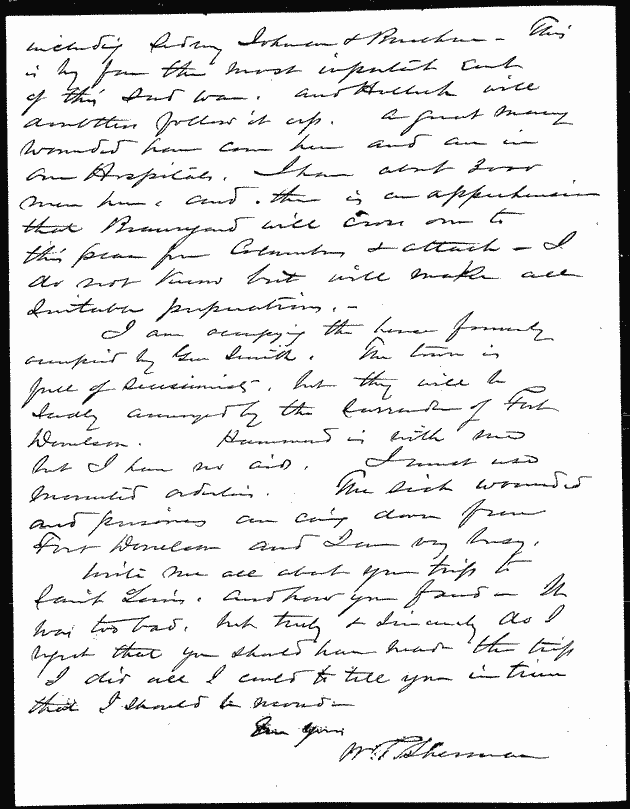 including Sidney Johnson & Buckner - This
is by far the most important Event
of this Sad War. and Halleck will
doubtless follow it up. a great many
wounded have come here and are in
our Hospitals. I have about 2000
men here, and there is an apprehension
that Beauregard will cross over to
this place from Columbus & attack - I
do not know but will make all
suitable preparations. -
I am occupying the house formerly
occupied by Gen Smith. The town is
full of secessionists, but they will be
sadly by the Surrender of Fort
Donelson. Hammond is with me
but I have no aids. I must use
mounted orderlies. The sick wounded
and prisoners are coming down from
Fort Donelson and I am very busy.
Write me all about your trip to
Saint Louis. and how you found - It
was too bad, but truly & sincerely do I
regret that you should have made the trip
I did all I could to tell you in time
that I should be moved -
Ever Yours
W. T. Sherman